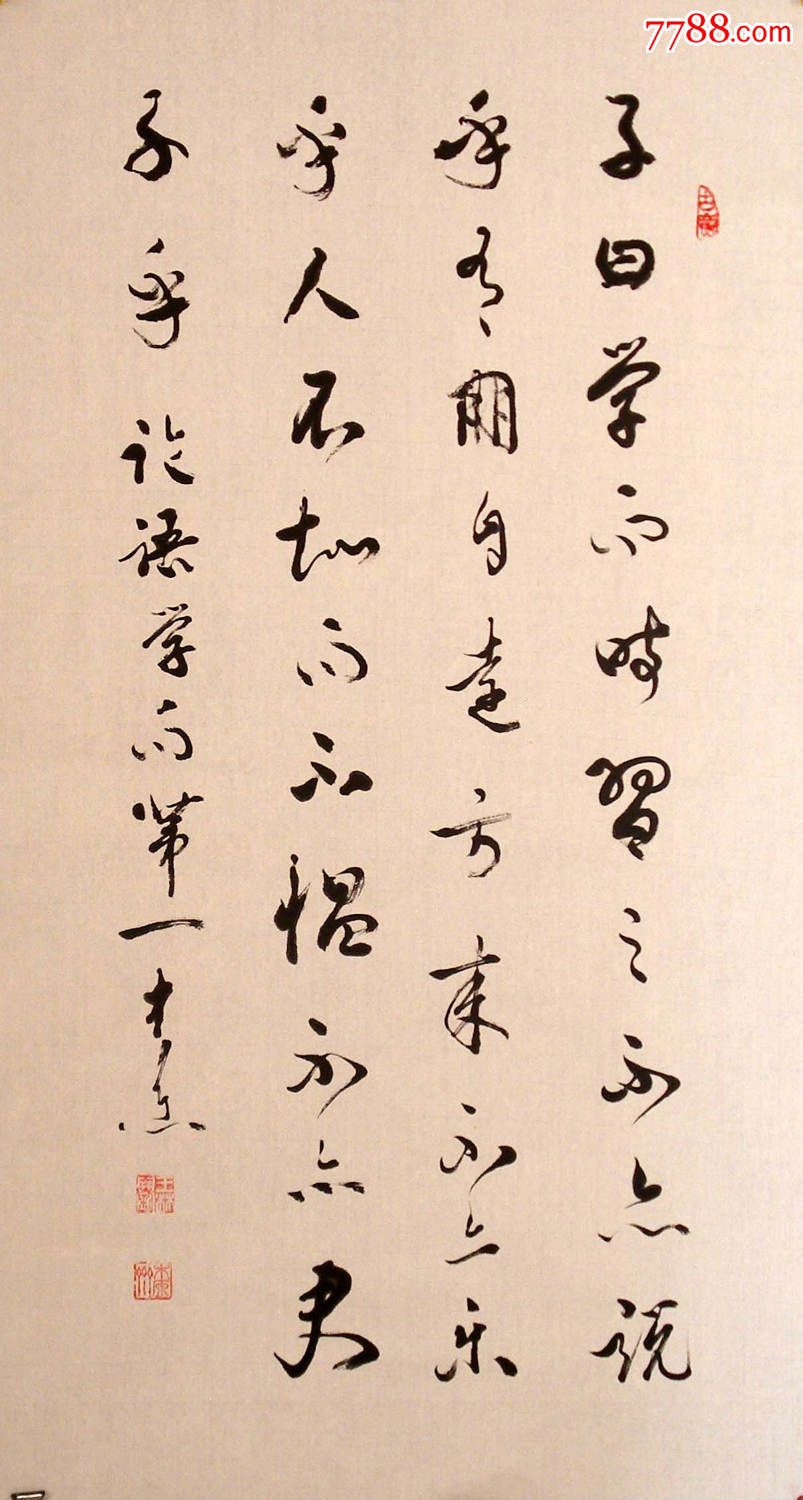 7788.com
子曰学而时習之不亦说
乎有朋自远方来不亦乐
乎人不知而不愠不亦君
子乎 论语学而第一